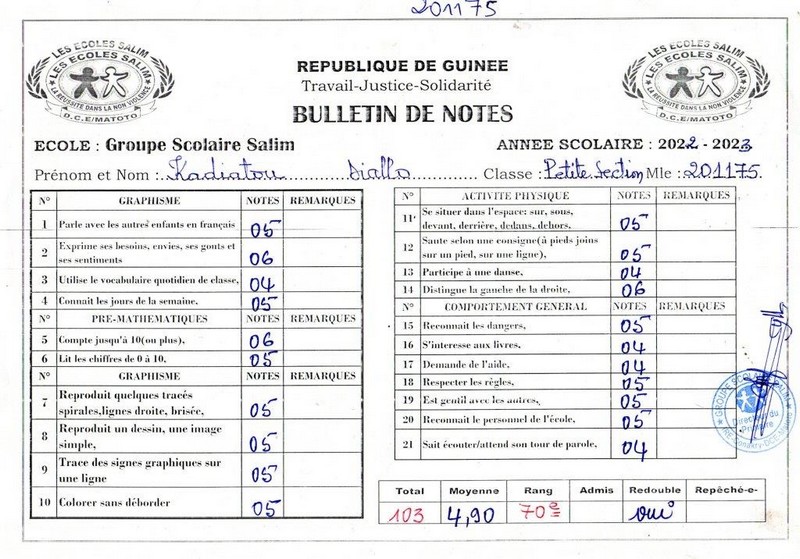 201175
LES ECOLES SALIM
LES ECOLES SALIM
LA REUSSITE DANS LA NON VIOLENCE
D.C.E/MATOTO
REPUBLIQUE DE GUINEE
Travail-Justice-Solidarité
BULLETIN DE NOTES
LES ECOLES SALIM
LES ECOLES SALIM
LA REUSSITE DANS LA NON VIOLENCE
D.C.E/MATOTO
ECOLE : Groupe Scolaire Salim
ANNEE SCOLAIRE : 2022 - 2023
Prénom et Nom : Kadiatou Diallo Classe : Petite Section Mle : 201175.
N° GRAPHISME NOTES REMARQUES
1 Parle avec les autres enfants en français 05
2 Exprime ses besoins, envies, ses gonts et
ses sentiments 06
3 Utilise le vocabulaire quotidien de classe, 04
4 Connait les jours de la semaine. 05
PRE-MATHEMATIQUES NOTES REMARQUES
5 Compte jusqu'à 10(ou plus), 06
6 Lit les chiffres de 0 à 10. 05
N° GRAPHISME NOTES REMARQUES
7 Reproduit quelques tracés
spirales,lignes droite, brisée, 05
8 Reproduit un dessin, une image
simple, 05
9 Trace des signes graphiques sur
une ligne 05
10 Colorer sans déborder 05
N° ACTIVITE PHYSIQUE NOTES REMARQUES
11 Se situer dans l'espace: sur, sous,
devant, derrière, dedans, dehors. 05
12 Saute selon une consigne(à pieds joins
sur un pied, sur une ligne), 05
13 Participe à une danse, 04
14 Distingue la gauche de la droite, 06
N° COMPORTEMENT GENERAL NOTES REMARQUES
15 Reconnait les dangers, 05
16 S'interesse aux livres, 04
17 Demande de l'aide, 04
18 Respecter les règles, 05
19 Est gentil avec les autres, 05
20 Reconnait le personnel de l'école, 05
21 Sait écouter/attend son tour de parole, 04
Directeur du
Primaire
Total Moyenne Rang Admis Redouble Repêché-e-
103 4,90 70e oui